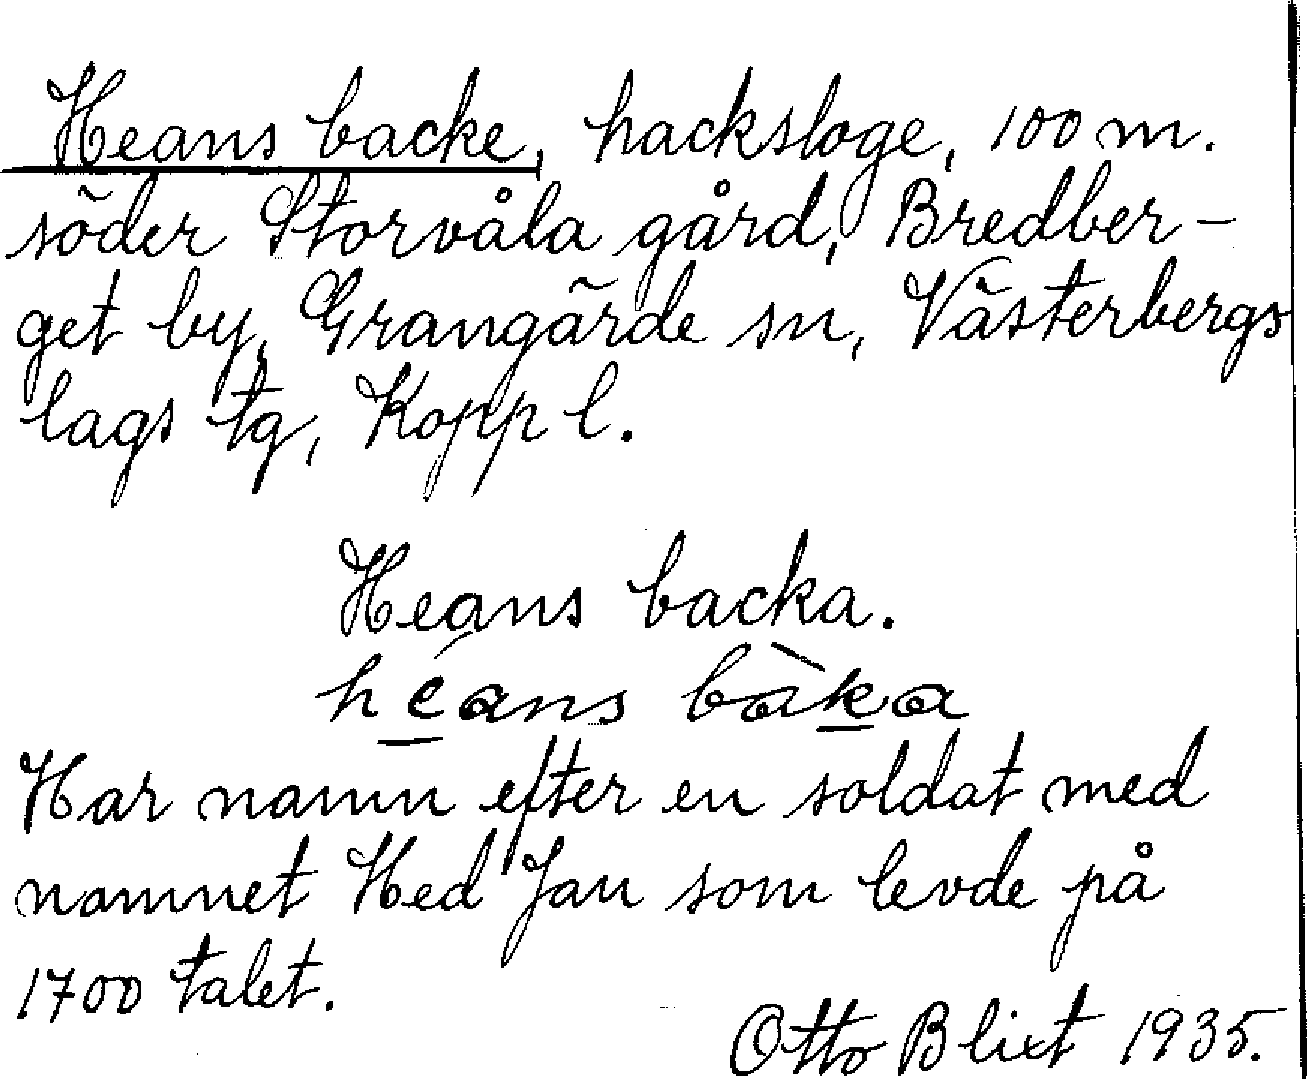 Heans backe, hacksloge, 100 m.
söder Storvåla gård, Bredber-
get by, Grangärde sn, Västerbergs
lags tg, Kopp l.
Heans backa.
héans bàka
Har namn efter en soldat med
namnet Hed Jan som levde på
1700 talet.
Otto Blixt 1935.